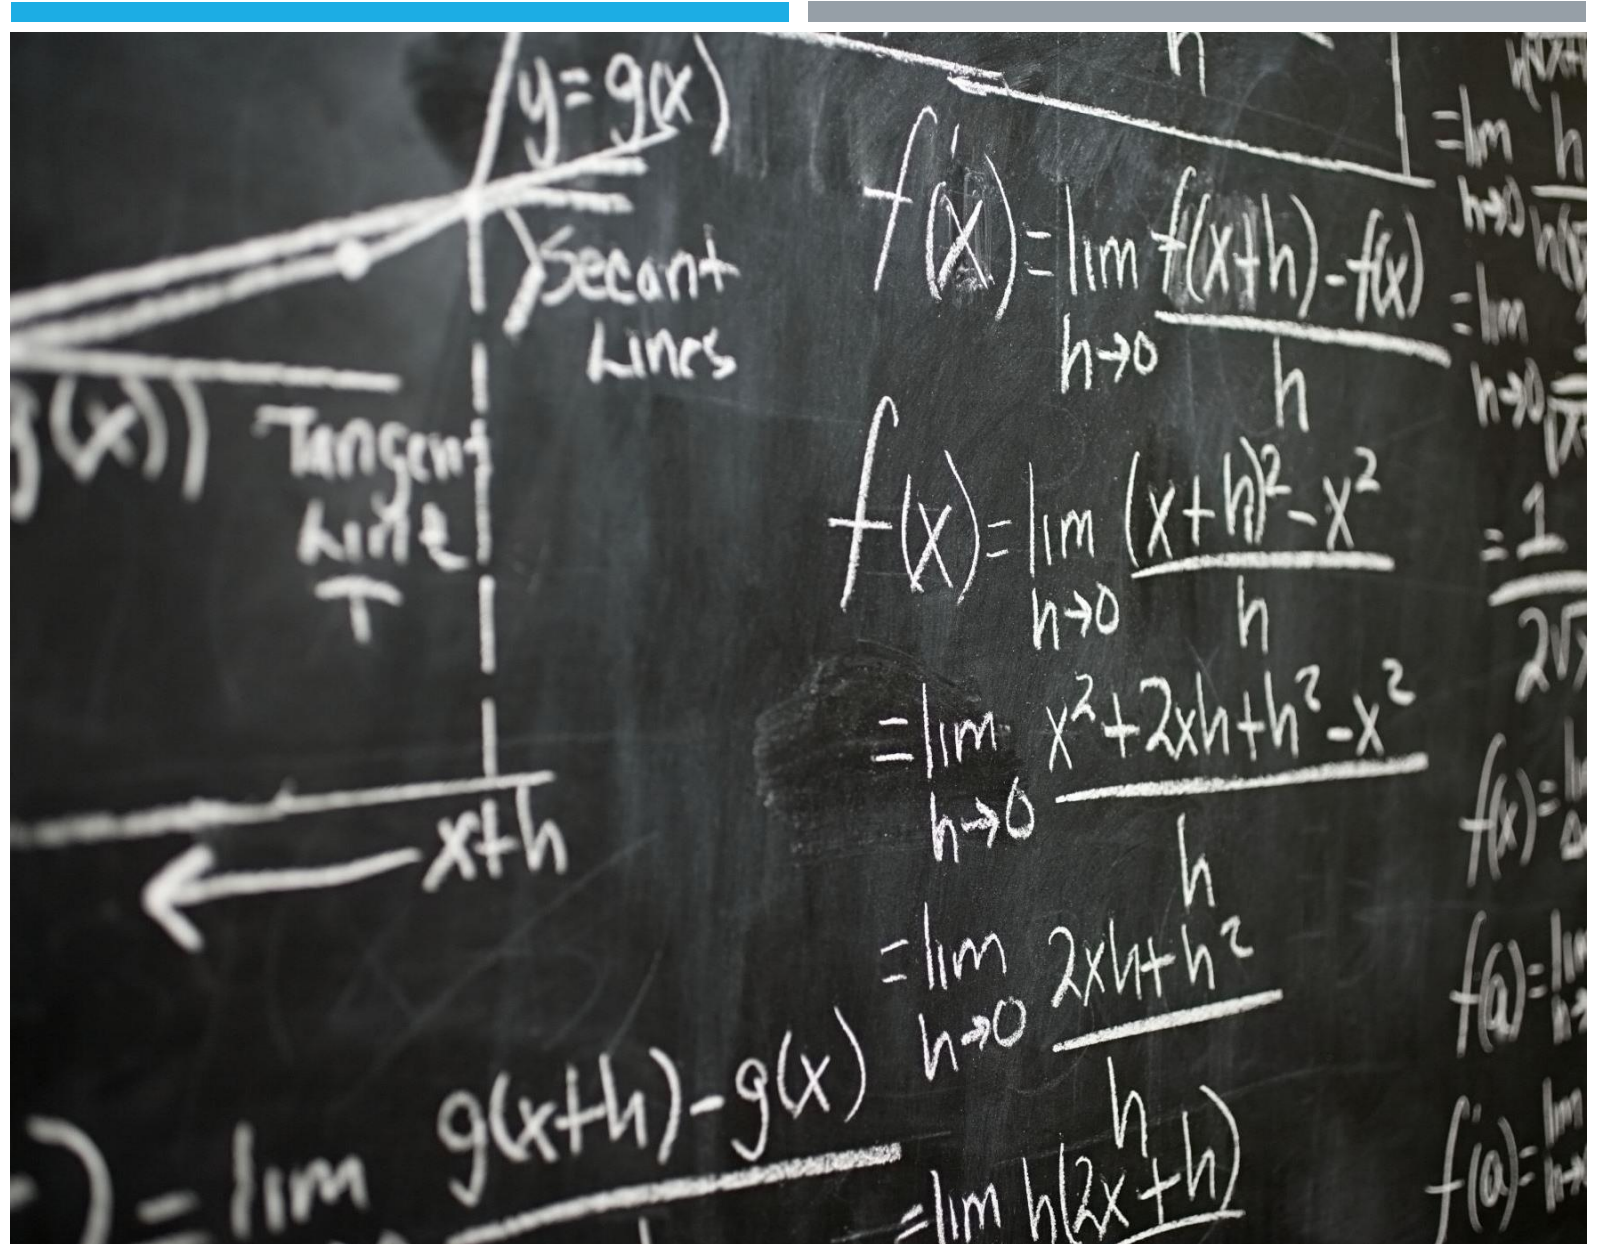 y = g(x)
Secant
Lines
g(x))
Tangent
Line
T
x+h
g(x+h) - g(x)
) = lim
h
f'(x) = lim f(x+h) - f(x)
h→0 h
f(x) = lim (x+h)² - x²
h→0 h
= lim x² + 2xh + h² - x²
h→0 h
= lim 2xh + h²
h→0 h
= lim h(2x+h)
= lim h
h→0
= lim
h→0
= 1
2√x
f(x) =
f(a) = lim
f'(a) = lim